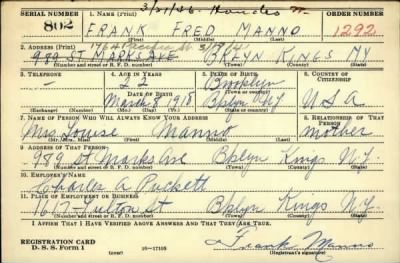 3/21/56 Hondes m
SERIAL NUMBER 1. NAME (Print) ORDER NUMBER
802 FRANK FRED MANNO 1292
(First) (Middle) (Last)
2. ADDRESS (Print) 3/19/41
989 ST. MARKS AVE BKLYN KINGS NY
(Number and street or R. F. D. number) (Town) (County) (State)
3. TELEPHONE 4. AGE IN YEARS 5. PLACE OF BIRTH 6. COUNTRY OF CITIZENSHIP
— 22 Brooklyn
DATE OF BIRTH (Town or county)
March 8 1918 Bklyn N.Y. USA
(Exchange) (Number) (Mo.) (Day) (Yr.) (State or country)
7. NAME OF PERSON WHO WILL ALWAYS KNOW YOUR ADDRESS 8. RELATIONSHIP OF THAT PERSON
Mrs. Louise Manno mother
(Mr., Mrs., Miss) (First) (Middle) (Last)
9. ADDRESS OF THAT PERSON
989 St Marks Ave Bklyn Kings N.Y.
(Number and street or R. F. D. number) (Town) (County) (State)
10. EMPLOYER'S NAME
Charles A Puckett
11. PLACE OF EMPLOYMENT OR BUSINESS
1617 Fulton St Bklyn Kings N.Y.
(Number and street or R. F. D. number) (Town) (County) (State)
I AFFIRM THAT I HAVE VERIFIED ABOVE ANSWERS AND THAT THEY ARE TRUE.
REGISTRATION CARD
D. S. S. Form 1 16—17105 Frank Manno
(over) (Registrant's signature)